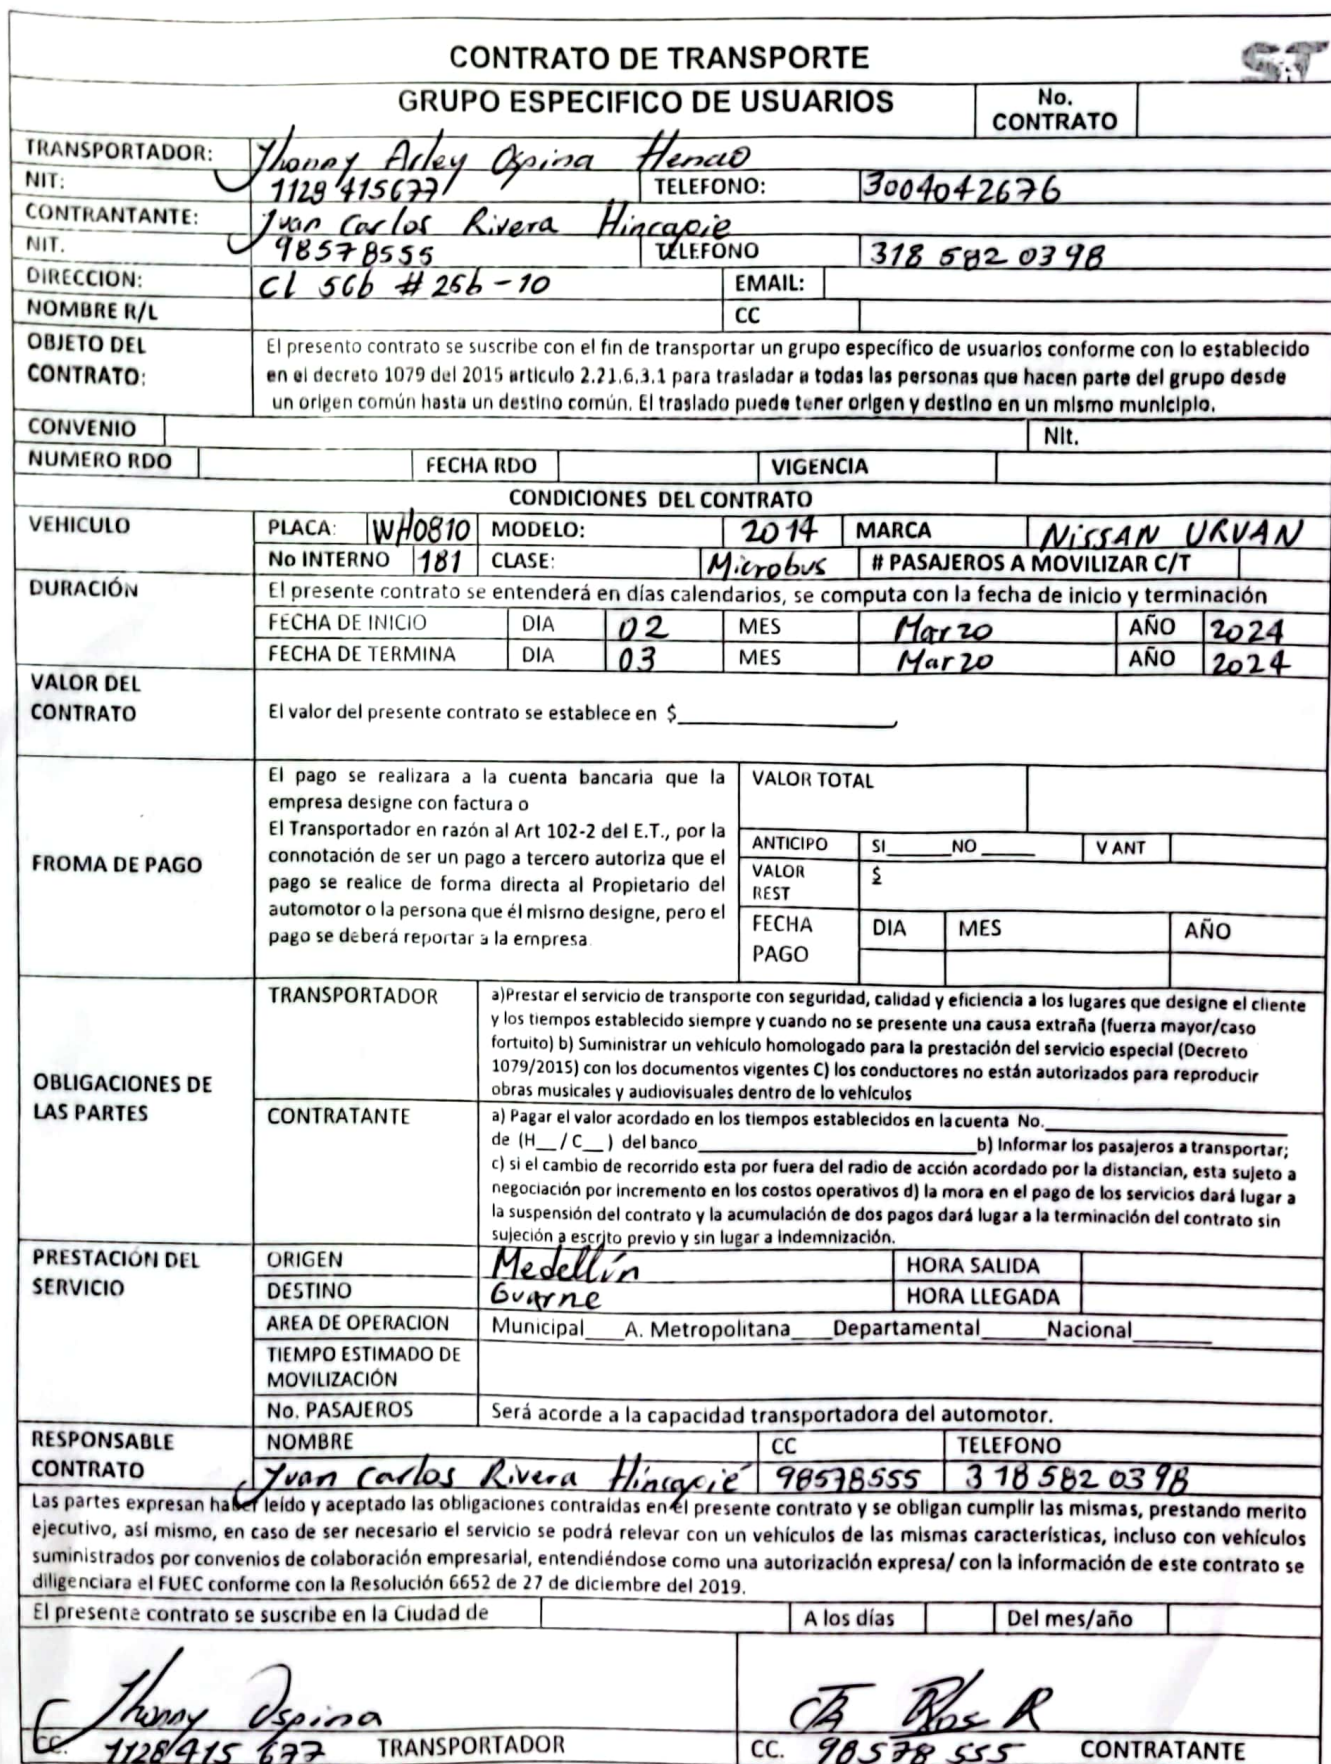 CONTRATO DE TRANSPORTE
ST
GRUPO ESPECIFICO DE USUARIOS
No. CONTRATO
TRANSPORTADOR: Jhonny Arley Ospina Henao
NIT: 1128415677 TELEFONO: 3004042676
CONTRANTANTE: Juan Carlos Rivera Hincapie
NIT. 98578555 TELEFONO 318 582 0398
DIRECCION: CL 56b # 26b-10 EMAIL:
NOMBRE R/L CC
OBJETO DEL CONTRATO:
El presento contrato se suscribe con el fin de transportar un grupo específico de usuarios conforme con lo establecido
en el decreto 1079 del 2015 articulo 2.21.6.3.1 para trasladar a todas las personas que hacen parte del grupo desde
un origen común hasta un destino común. El traslado puede tener origen y destino en un mismo municipio.
CONVENIO Nit.
NUMERO RDO FECHA RDO VIGENCIA
CONDICIONES DEL CONTRATO
VEHICULO PLACA: WHO810 MODELO: 2014 MARCA NISSAN URVAN
No INTERNO 181 CLASE: Microbus # PASAJEROS A MOVILIZAR C/T
DURACIÓN El presente contrato se entenderá en días calendarios, se computa con la fecha de inicio y terminación
FECHA DE INICIO DIA 02 MES Marzo AÑO 2024
FECHA DE TERMINA DIA 03 MES Marzo AÑO 2024
VALOR DEL CONTRATO
El valor del presente contrato se establece en $
FROMA DE PAGO
El pago se realizara a la cuenta bancaria que la
empresa designe con factura o
El Transportador en razón al Art 102-2 del E.T., por la
connotación de ser un pago a tercero autoriza que el
pago se realice de forma directa al Propietario del
automotor o la persona que él mismo designe, pero el
pago se deberá reportar a la empresa.
VALOR TOTAL
ANTICIPO SI______NO______ V ANT
VALOR REST $
FECHA PAGO DIA MES AÑO
OBLIGACIONES DE LAS PARTES
TRANSPORTADOR
a)Prestar el servicio de transporte con seguridad, calidad y eficiencia a los lugares que designe el cliente
y los tiempos establecido siempre y cuando no se presente una causa extraña (fuerza mayor/caso
fortuito) b) Suministrar un vehículo homologado para la prestación del servicio especial (Decreto
1079/2015) con los documentos vigentes C) los conductores no están autorizados para reproducir
obras musicales y audiovisuales dentro de lo vehículos
CONTRATANTE
a) Pagar el valor acordado en los tiempos establecidos en la cuenta No.____________
de (H__/C__) del banco____________b) Informar los pasajeros a transportar;
c) si el cambio de recorrido esta por fuera del radio de acción acordado por la distancian, esta sujeto a
negociación por incremento en los costos operativos d) la mora en el pago de los servicios dará lugar a
la suspensión del contrato y la acumulación de dos pagos dará lugar a la terminación del contrato sin
sujeción a escrito previo y sin lugar a indemnización.
PRESTACIÓN DEL SERVICIO
ORIGEN Medellín HORA SALIDA
DESTINO Guarne HORA LLEGADA
AREA DE OPERACION Municipal____A. Metropolitana____Departamental_____Nacional______
TIEMPO ESTIMADO DE MOVILIZACIÓN
No. PASAJEROS Será acorde a la capacidad transportadora del automotor.
RESPONSABLE CONTRATO
NOMBRE CC TELEFONO
Juan Carlos Rivera Hincapié 98578555 318 582 0398
Las partes expresan haber leído y aceptado las obligaciones contraídas en el presente contrato y se obligan cumplir las mismas, prestando merito
ejecutivo, así mismo, en caso de ser necesario el servicio se podrá relevar con un vehículos de las mismas características, incluso con vehículos
suministrados por convenios de colaboración empresarial, entendiéndose como una autorización expresa/ con la información de este contrato se
diligenciara el FUEC conforme con la Resolución 6652 de 27 de diciembre del 2019.
El presente contrato se suscribe en la Ciudad de A los días Del mes/año
Jhonny Ospina
CC. 1128415677 TRANSPORTADOR
CC. 98578555 CONTRATANTE